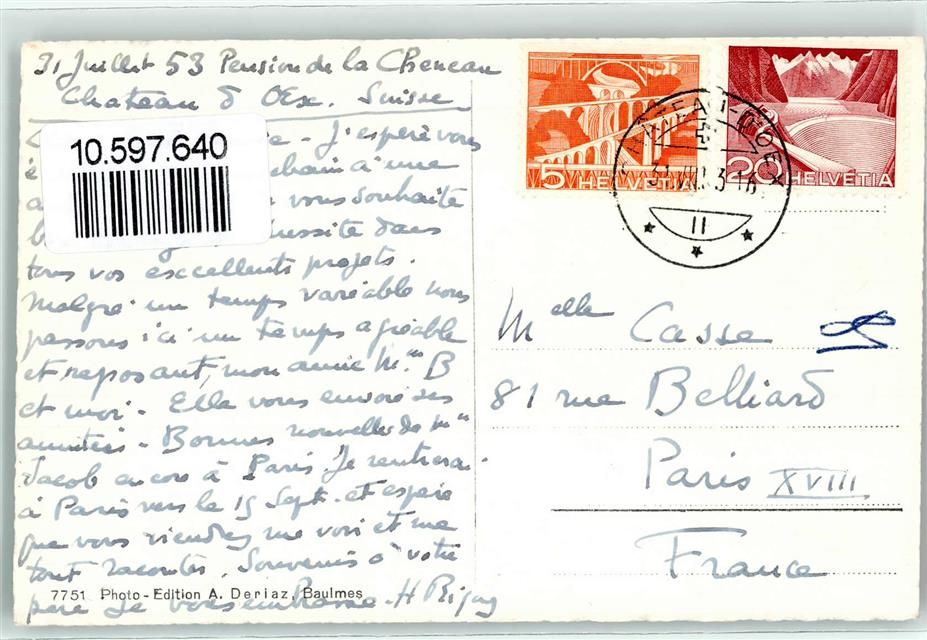 31 Juillet 53 Pension de la Cheneau
Chateau d Oex. Suisse
10.597.640
J'espère vous
à une
vous souhaite
dans
tous vos excellents projets.
Malgré un temps variable nous
passons ici un temps agréable
et reposant, mon amie Mme B
et moi. Elle vous envoie ses
amitiés. Bonnes nouvelles de Mme
Jacob encore à Paris. Je rentrerai
à Paris vers le 15 Sept. et espère
que vous viendrez me voir et me
tout raconter. Souvenirs à votre
père Je vous embrasse. H
7751 Photo - Edition A. Deriaz, Baulmes
5 HELVETIA
20 HELVETIA
CHATEAU-D'OEX
31.VII.53-16
II
Melle Casse
81 rue Belliard
Paris XVIII
France